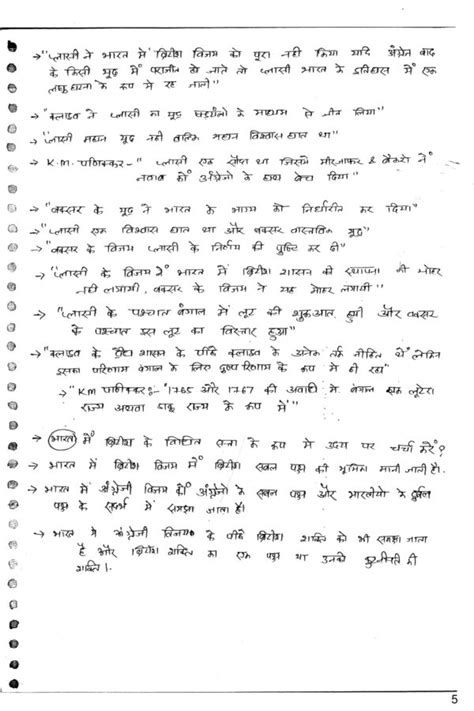 → "प्लासी ने भारत में ब्रिटिश विजय को पूरा नहीं किया यदि अंग्रेज बाद
के किसी युद्ध में पराजित हो जाते तो प्लासी भारत के इतिहास में एक
लघु घटना के रूप में रह जाती"
→ "क्लाइव ने प्लासी का युद्ध षडयंत्रों के माध्यम से जीत लिया"
→ "प्लासी महान युद्ध नहीं बल्कि महान विश्वास घात था"
→ K.M. पणिक्कर - " प्लासी एक सौदा था जिसमें मीरजाफर & सेठों ने
नवाब को अंग्रेजो के हाथ बेच दिया"
→ "बक्सर के युद्ध ने भारत के भाग्य को निर्धारित कर दिया"
→ "प्लासी एक विश्वास घात था और बक्सर वास्तविक युद्ध"
→ "बक्सर के विजय प्लासी के निर्णय की पुष्टि कर दी"
→ "प्लासी के विजय ने भारत में ब्रिटिश शासन की स्थापना की मोहर
नहीं लगायी, बक्सर के विजय ने यह मोहर लगायी"
→ "प्लासी के पश्चात बंगाल में लूट की शुरूआत हुयी और बक्सर
के पश्चात इस लूट का विस्तार हुआ"
→ "क्लाइव के द्वैध शासन के पीछे क्लाइव के अनेक तर्क निहित थे लेकिन
इसका परिणाम बंगाल के लिए दुष्परिणाम के रूप में ही रहा"
→ "KM पणिक्कर :- '1765 और 1767 की अवधि में बंगाल एक लूटेरा
राज्य अथवा डाकू राज्य के रूप में"
→ भारत में ब्रिटिश के विजित सत्ता के रूप में उदय पर चर्चा करें?
→ भारत में ब्रिटिश विजय में ब्रिटिश सबल पक्ष की भूमिका मानी जाती है।
→ भारत में अंग्रेजी विजय को अंग्रेजों के सबल पक्ष और भारतीयों के दुर्बल
पक्ष के संदर्भ में समझा जाता है।
→ भारत में अंग्रेजी विजय के पीछे ब्रिटिश शक्ति को भी समझा जाता
है और ब्रिटिश शक्ति का एक पक्ष था उनकी कूटनीति की
शक्ति।
5